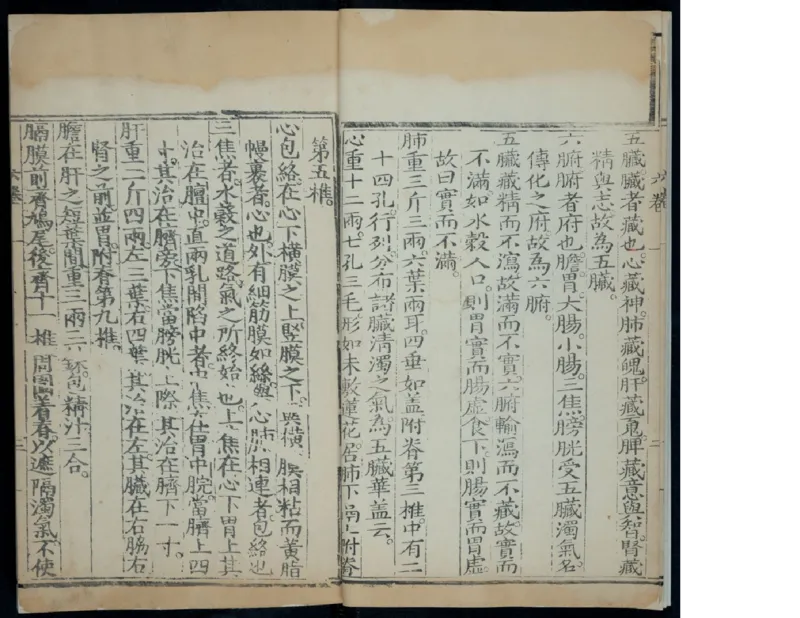 五臟臟者藏也。心藏神肺藏魄肝藏䰟脾藏意與智腎藏
精與志故為五臟。
六腑腑者府也膽。胃。大腸。小腸。三焦。膀胱受五臟濁氣名
傳化之府故為六腑。
五臟藏精而不瀉故滿而不實。六腑輸瀉而不藏。故實而
不滿如水穀入口則胃實而腸虛食下。則腸實而胃虛
故曰實而不滿。
肺重三斤三兩。六葉兩耳。四垂如盖附脊第三椎。中有二
十四孔。行列分布諸臟清濁之氣為五臟華盖云。
心重十二兩。七孔三毛形如未敷蓮花。居肺下鬲上附脊
第五椎。
心包絡在心下橫膜之上竪膜之下。與橫膜相粘而黃脂
幔裹者。心也外有細筋膜如絲。與心肺相連者。包絡也
三焦者。水穀之道路。氣之所終始也。上焦在心下胃上其
治在膻中。直兩乳間陷中者。中焦在胃中脘。當臍上四
寸。其治在臍旁。下焦當膀胱上際其治在臍下一寸。
肝重二斤四兩。左三葉右四葉。其治在左其臟在右脇右
腎之前並胃。附脊第九椎。
膽在肝之短葉間重三兩三銖。包精汁三合。
膈膜前齊鳩尾後齊十一椎周圍着脊。以遮隔濁氣不使
六卷
一
六卷